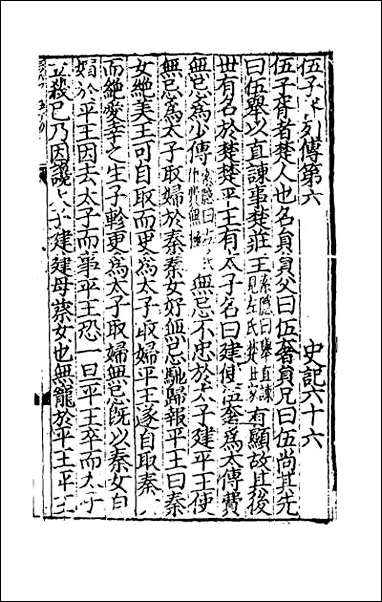 伍子胥列傳第六 史記六十六
伍子胥者楚人也名員員父曰伍奢員兄曰伍尚其先
曰伍舉以直諫事楚莊王索隱曰舉直諫見左氏楚世家有顯故其後
世有名於楚楚平王有太子名曰建使伍奢為太傅費
無忌為少傅索隱曰左傳作費無極無忌不忠於太子建平王使
無忌為太子取婦於秦秦女好無忌馳歸報平王曰秦
女絶美王可自取而更為太子取婦平王遂自取秦女
而絶愛幸之生子軫更為太子取婦無忌既以秦女自
媚於平王因去太子而事平王恐一旦平王卒而太子
立殺己乃因讒太子建建母蔡女也無寵於平王平王